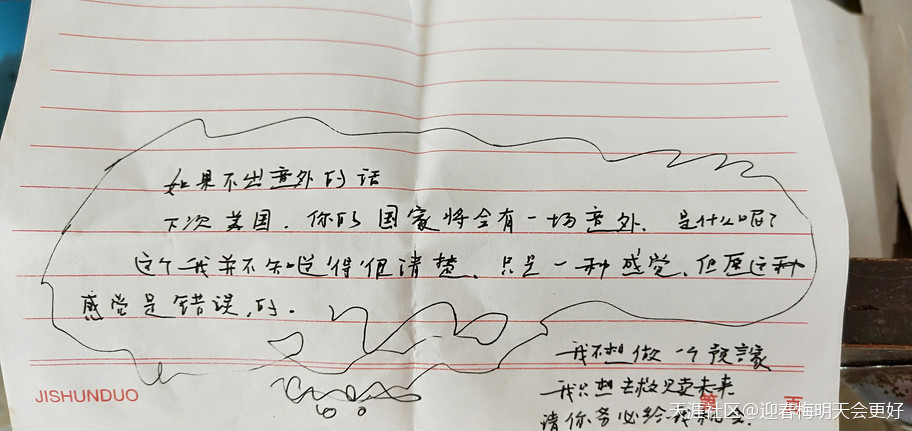 如果不出意外的话
下次美国.你的国家将会有一场意外.是什么呢?
这个我并不知道得很清楚、只是一种感觉、但愿这种
感觉是错误,的.
我不想做一个预言家
我只想去救赎未来
请你务必给我机会.
JISHUNDUO
第 页
天涯社区@迎春梅明天会更好